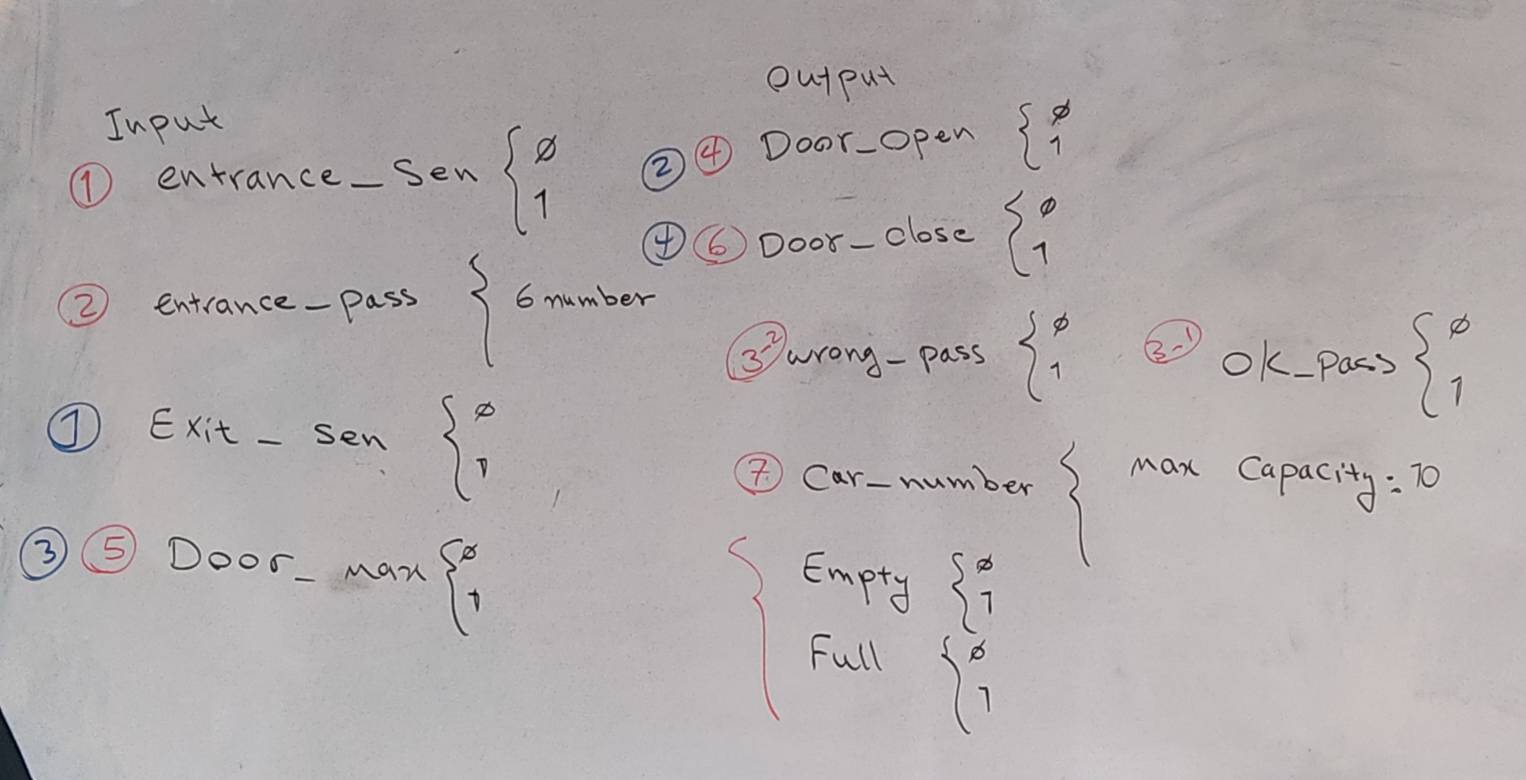 Input
① entrance_Sen { ø
1
② entrance_pass { 6 number
① Exit_sen { ø
1
③ ⑤ Door_max { ø
1
Output
② ④ Door_open { ø
1
④ ⑥ Door_close { ø
1
3-2 wrong_pass { ø
1
3-1 OK_pass { ø
1
⑦ Car_number { max Capacity: 10
{ Empty { ø
1
Full { ø
1